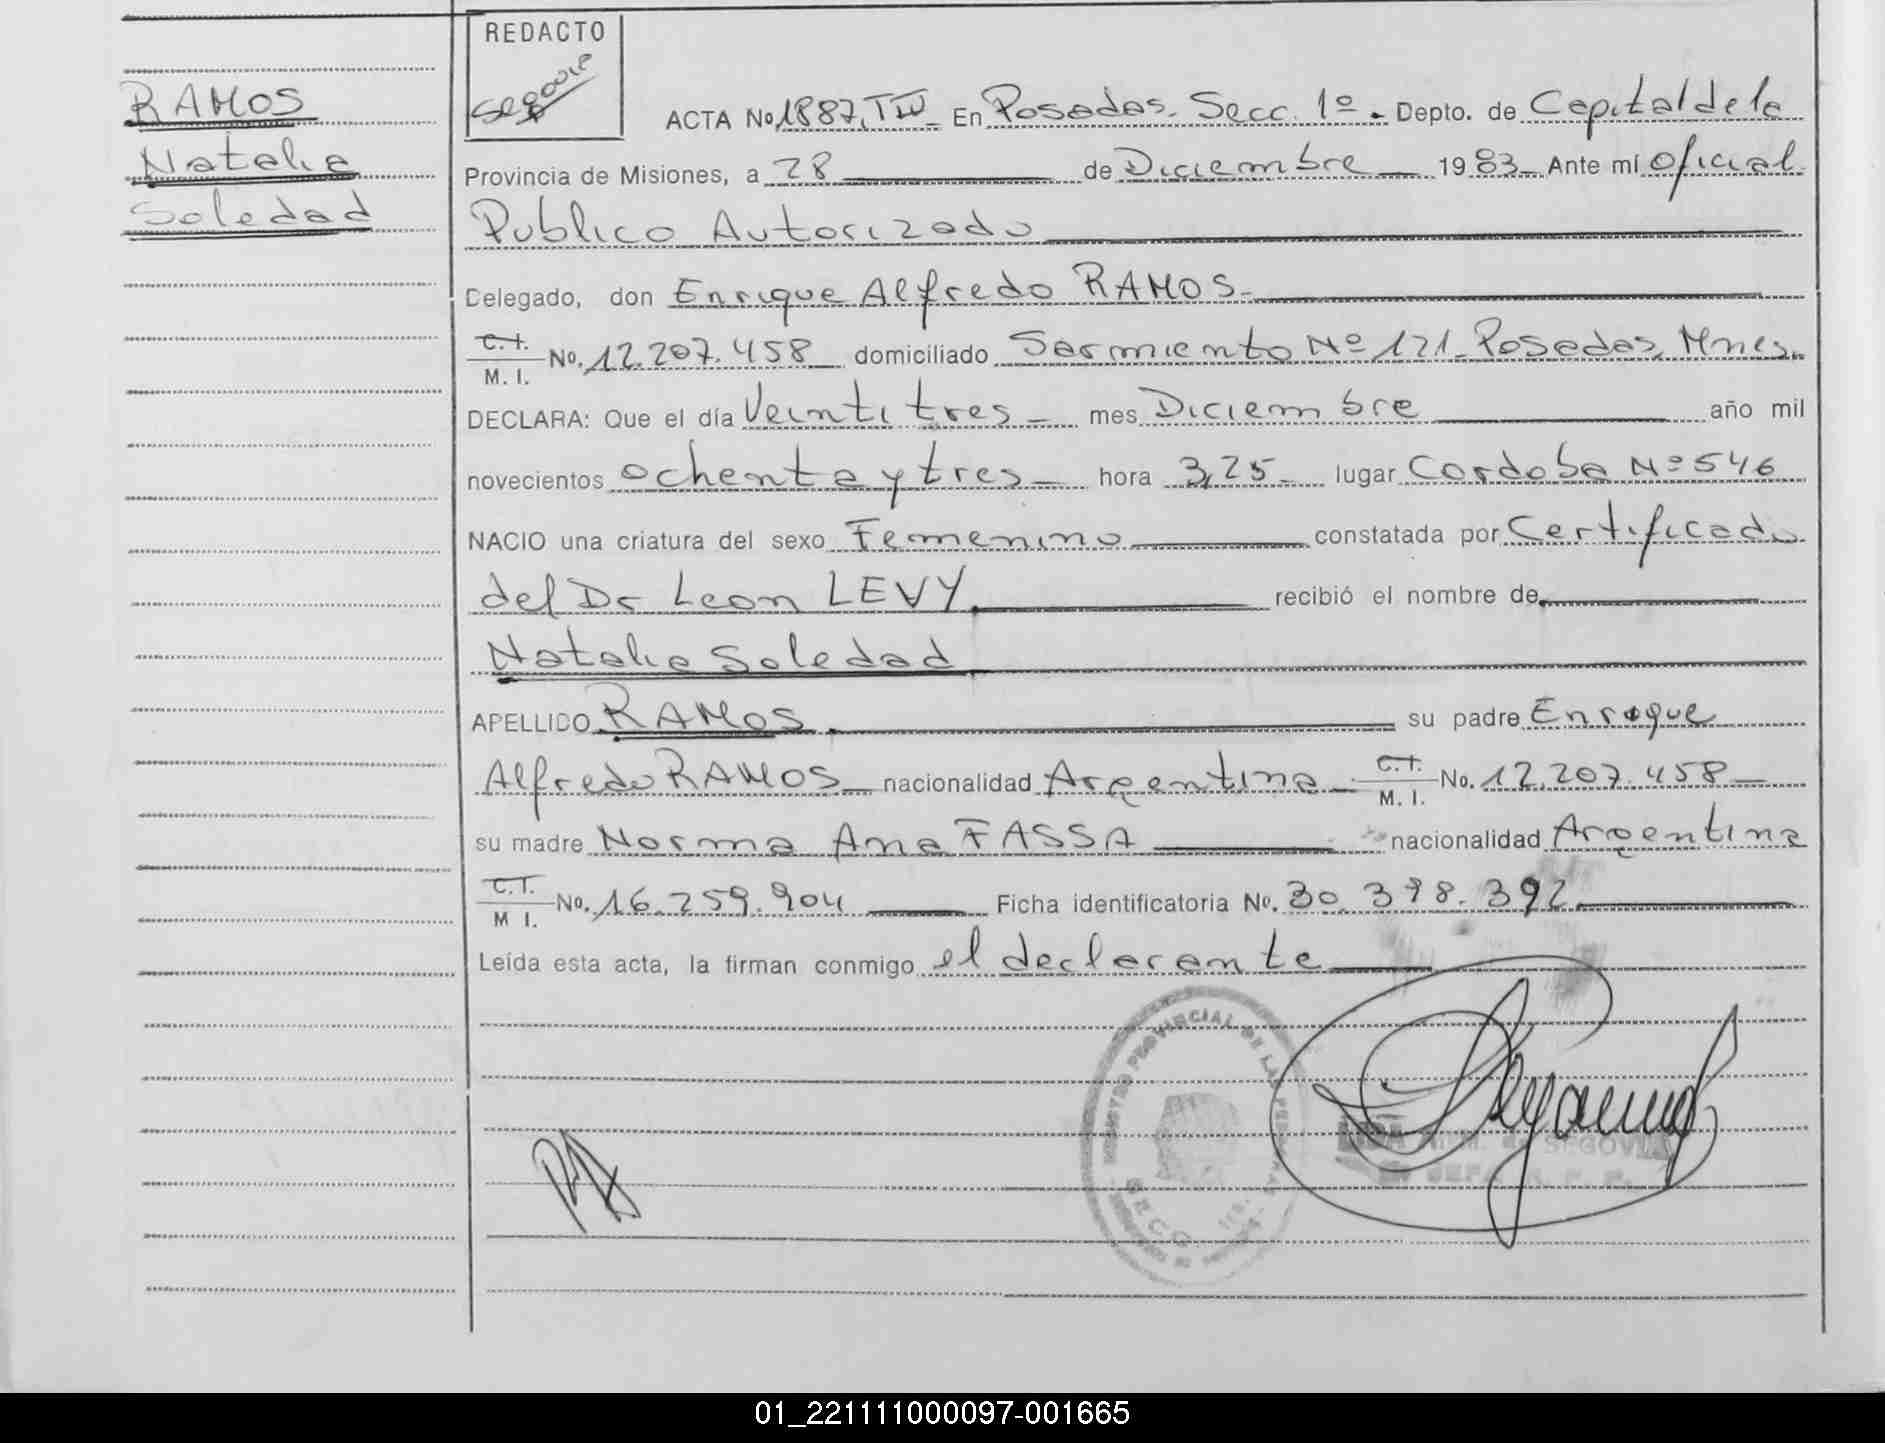 REDACTO
Segovia
RAMOS
Natalia
Soledad
ACTA No 1887, TIV En Posadas. Secc. 1º. Depto. de Capital de la
Provincia de Misiones, a 28 de Diciembre 1983 Ante mí oficial
Publico Autorizado
Delegado, don Enrique Alfredo RAMOS.
C.I. M. I. No. 12.207.458 domiciliado Sarmiento Nº 121. Posadas, Mnes.
DECLARA: Que el día Veinti tres mes Diciembre año mil
novecientos ochenta y tres hora 3,25 lugar Cordoba Nº 546
NACIO una criatura del sexo Femenino constatada por Certificado
del Dr Leon LEVY recibió el nombre de
Natalia Soledad
APELLIDO RAMOS su padre Enrique
Alfredo RAMOS nacionalidad Argentina C.I. M. I. No. 12.207.458
su madre Norma Ana FASSA nacionalidad Argentina
C.I. M I. No. 16.259.904 Ficha identificatoria No. 30.398.392
Leída esta acta, la firman conmigo el declarante
REGISTRO PROVINCIAL DE LAS PERSONAS
SECC. 1ra.
de SEGOVIA
JEFA
01_221111000097-001665